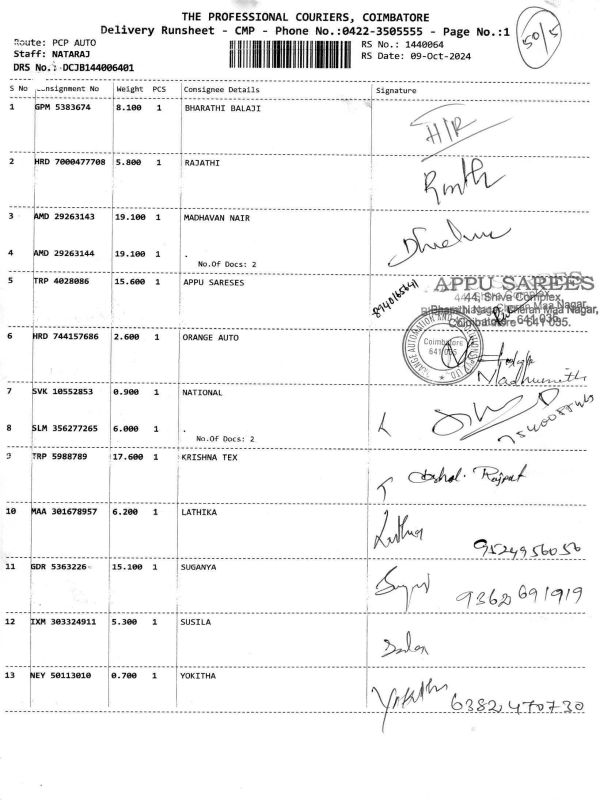 THE PROFESSIONAL COURIERS, COIMBATORE
Delivery Runsheet - CMP - Phone No.:0422-3505555 - Page No.:1
50/5
Route: PCP AUTO
RS No.: 1440064
Staff: NATARAJ
RS Date: 09-Oct-2024
DRS No.: DCJB144006401
S No Consignment No Weight PCS Consignee Details Signature
1 GPM 5383674 8.100 1 BHARATHI BALAJI
2 HRD 7000477708 5.800 1 RAJATHI
3 AMD 29263143 19.100 1 MADHAVAN NAIR
4 AMD 29263144 19.100 1 .
No.Of Docs: 2
5 TRP 4028086 15.600 1 APPU SARESES
APPU SAREES
44, Shiva Complex,
Bharathi Nagar, Cheran Maa Nagar,
Coimbatore - 641 035.
6 HRD 744157686 2.600 1 ORANGE AUTO
Coimbatore
641 035
Madhumitha
7 SVK 10552853 0.900 1 NATIONAL
8 SLM 356277265 6.000 1 .
No.Of Docs: 2
9 TRP 5988789 17.600 1 KRISHNA TEX
Rajput
10 MAA 301678957 6.200 1 LATHIKA
9524956056
11 GDR 5363226 15.100 1 SUGANYA
9362691919
12 IXM 303324911 5.300 1 SUSILA
13 NEY 50113010 0.700 1 YOKITHA
Yokitha 6382470730